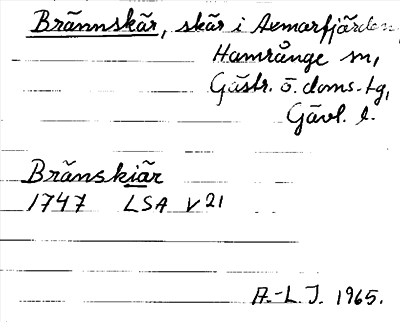 Brännskär, skär i Axmarfjärden,
Hamrånge sn,
Gästr. ö. doms.tg,
Gävl. l.
Bränskiär
1747 LSA V 21
A.-L. J. 1965.